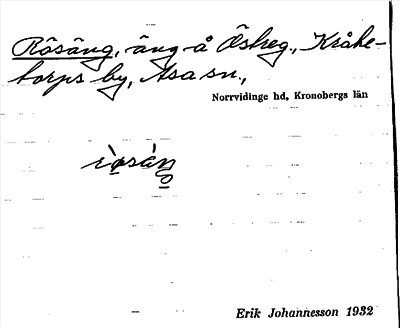 Rösäng, äng å Östreg., Kråke-
torps by, Asa sn.,
Norrvidinge hd, Kronobergs län
Erik Johannesson 1932